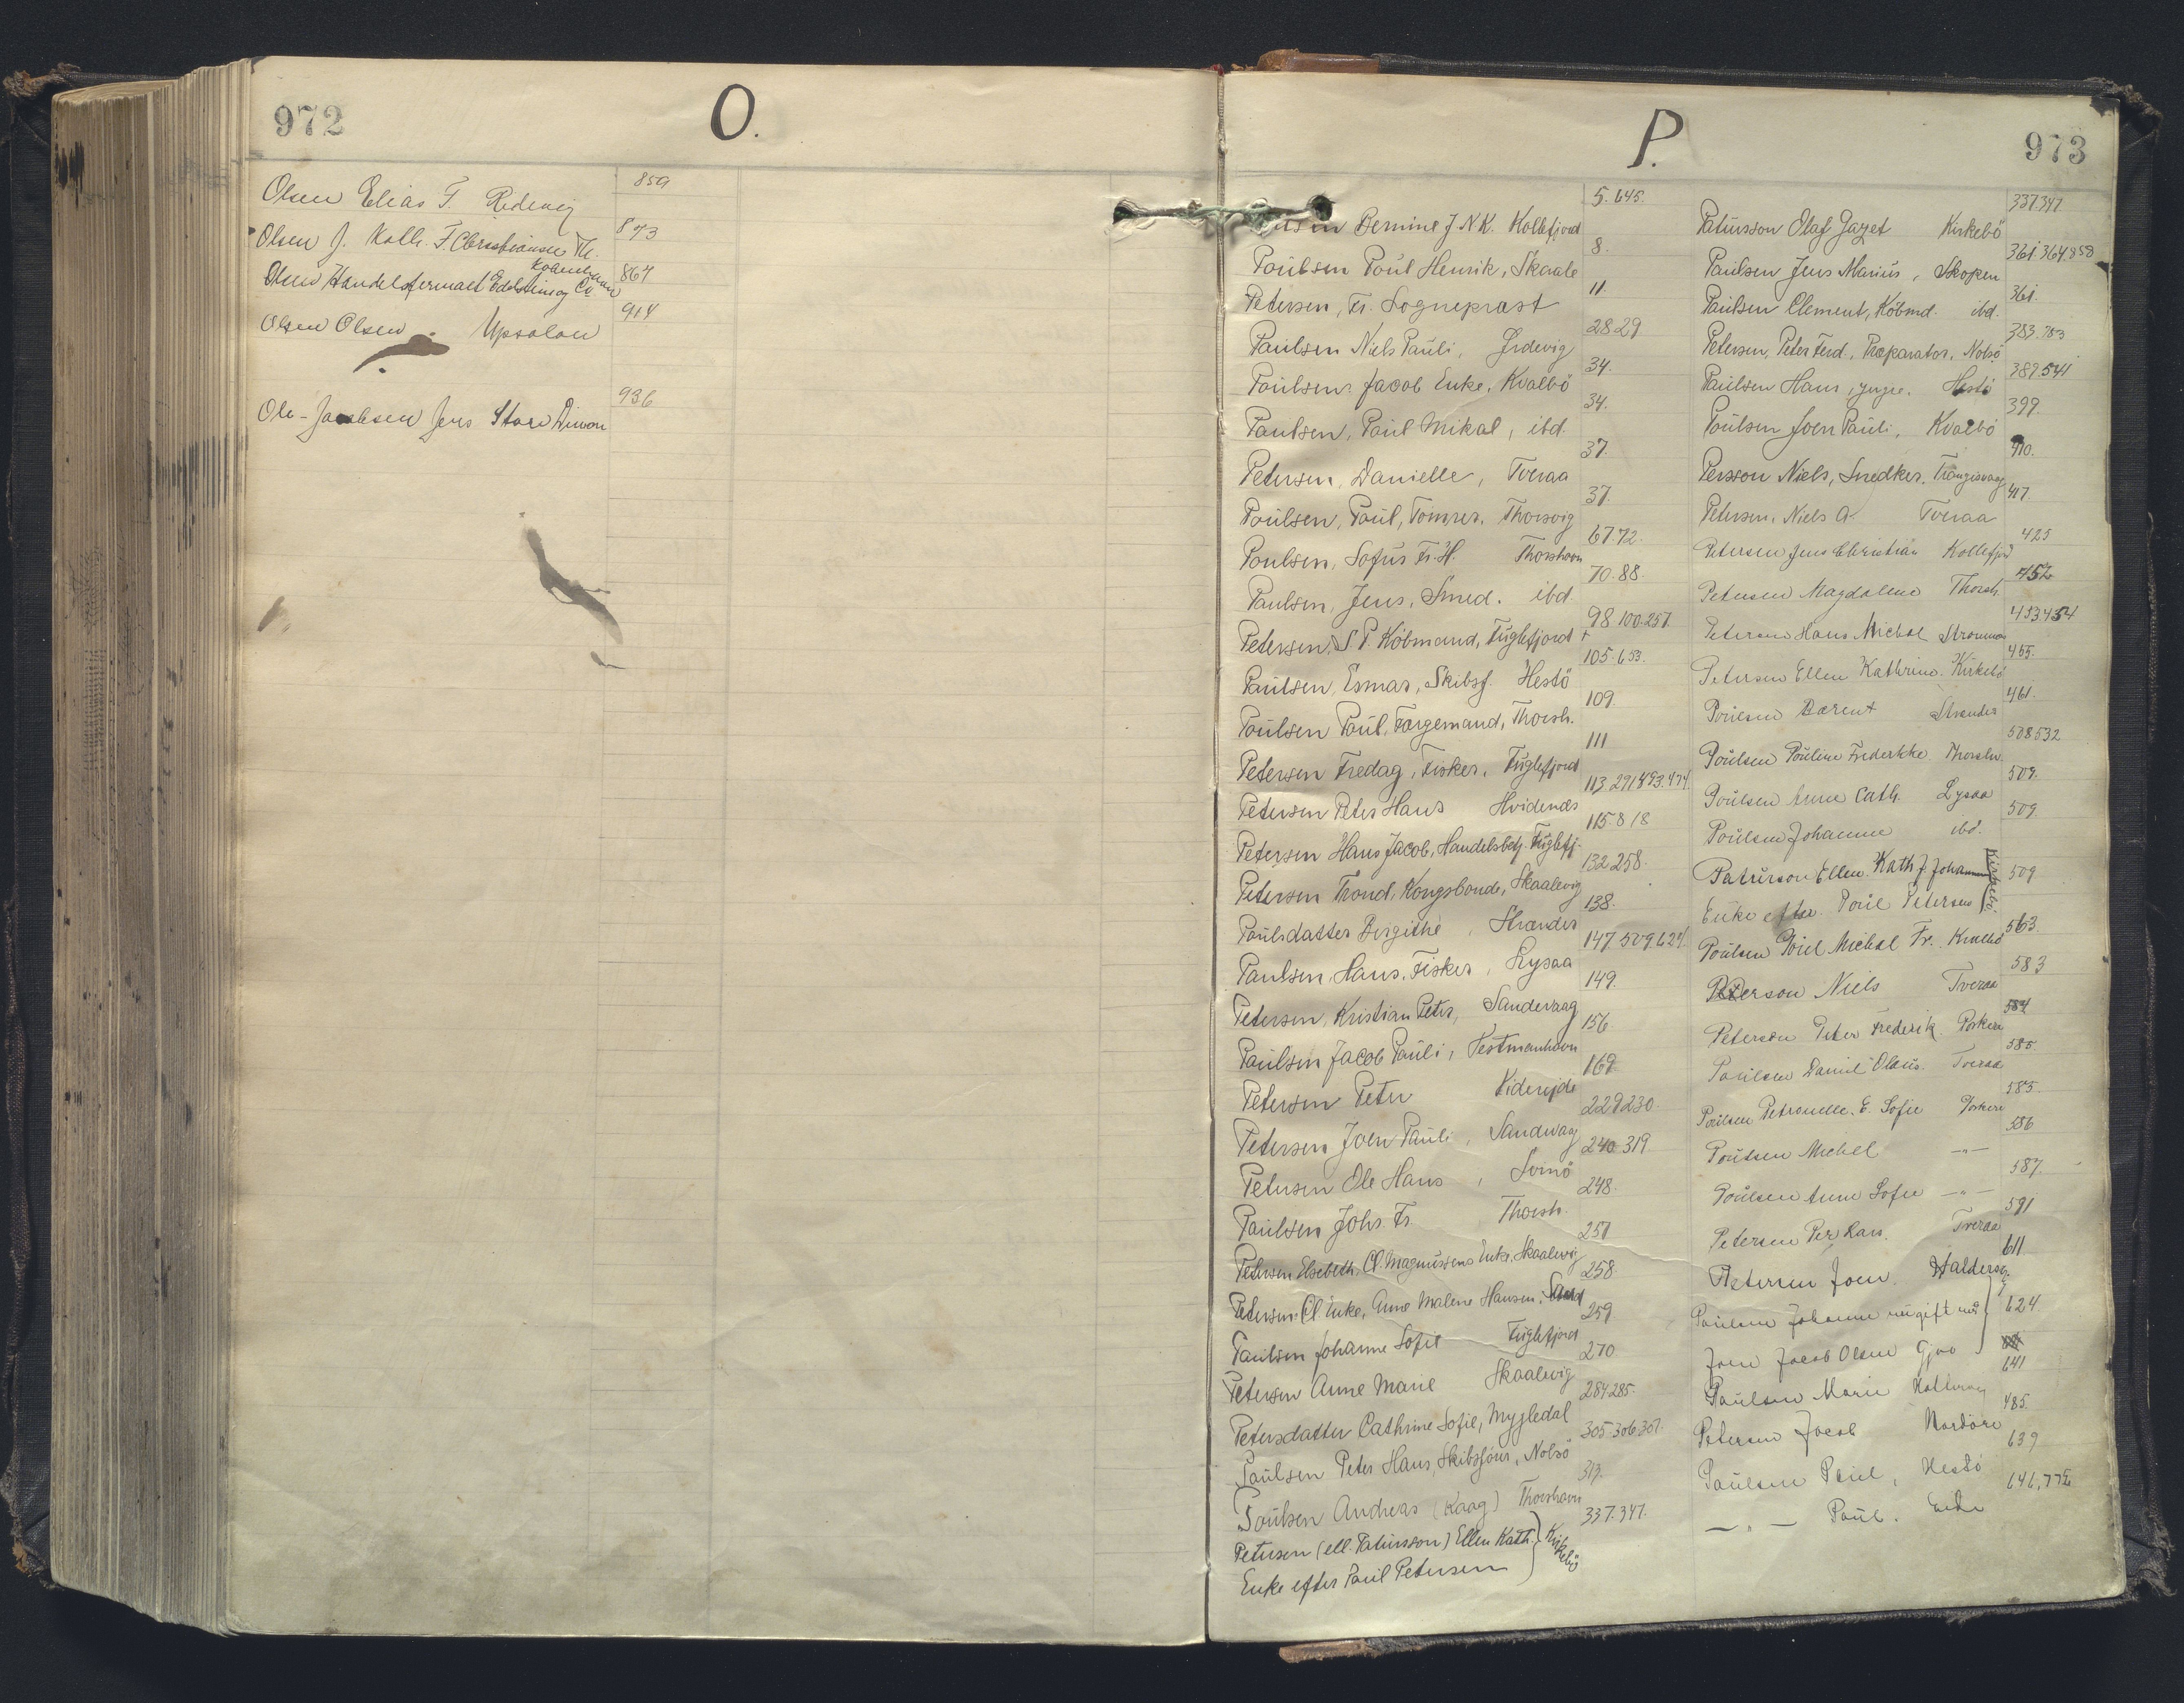 972
O.
Olsen Elias T. 859
Olsen J. Kath. F. Christiansen 873
Olsen Handelsfirmaet Edelstein og Co. København 867
Olsen Olsen Upsalon 914
Ole-Jacobsen Jens Store Dimon 936
P.
973
Bernine J. N. K. Kollefjord 5. 645.
Poulsen Poul Henrik, Skaale 8.
Petersen, Fr. Sognepræst 11
Paulsen Niels Pauli, 28 29
Poulsen Jacob Enke, Kvalbö 34.
Paulsen, Paul Mikal, ibd. 34.
Petersen, Danielle, Tveraa 37.
Poulsen, Poul, Tømrer, Thorsvig 37.
Poulsen, Sofus Fr. H. Thorshavn 67. 72.
Paulsen, Jens, Smed. ibd. 70. 88.
Petersen, S. P. Köbmand, Fuglefjord + 98 100. 257.
Paulsen, Esmar, Skibsf. Hestö 105. 653.
Poulsen Poul, Færgemand, Thorsh. 109.
Petersen Fredag, Fisker, Fuglefjord 111
Petersen Peter Hans Hvidenæs 113. 291 493. 474.
Petersen Hans Jacob, Handelsbetj. Fuglefj. 115. 818
Petersen Trond, Kongsbonde, Skaalevig 132 258.
Poulsdatter Birgithe, Strander 138.
Paulsen, Hans, Fisker, Lysaa 147. 509. 624.
Petersen, Kristian Peter, Sandevaag 149.
Paulsen Jacob Pauli, Vestmanhavn 156
Petersen Peter Viderejde 169.
Petersen Joen Pauli, Sandvaag 229 230.
Petersen Ole Hans, Svinö 240. 319.
Paulsen Johs. Fr. Thorsh. 248.
Petersen Elsebeth, Cl. Magnussens Enke, Skaalevig 251
Petersen Cl. Enke, Anne Malene Hansen, Sand 258.
Paulsen Johanne Sofie Fuglefjord 259
Petersen Anne Marie Skaalevig 270
Petersdatter Cathrine Sofie, Mygledal 284 285.
Paulsen Peter Hans, Skibsfører, Nolsö 305. 306 307.
Poulsen Andreas (Kaag) Thorshavn 313.
Petersen (ell. Patursson) Ellen Kath. } Kirkebö 337. 347.
Enke efter Paul Petersen
Patursson Olaf Gazet Kirkebö 337 347
Paulsen Jens Marius, Skopen 361. 364. 858
Paulsen Clement, Köbmd. ibd. 361.
Petersen, Peter Ferd., Præparator, Nolsø 383. 783
Paulsen Hans, yngre. Hestö 389. 541
Poulsen Joen Pauli, Kvalbö 399.
Persson Niels, Snedker, Trangisvaag 410.
Petersen, Niels A. Tveraa 417
Petersen Jens Christian Kollefjord 425
Petersen Magdalene Thorsh. 452
Petersen Hans Michal Strømnæs 453 454
Petersen Ellen Kathrine. Kirkebö 455.
Poulsen Berent Strander 461.
Poulsen Pouline Frederikke Thorshn. 508 532
Poulsen Anne Cath. Lysaa 509.
Poulsen Johanne ibd. 509.
Patursson Ellen Kath. J. Johannesen } Kirkebö. 509
Enke efter Poul Petersen
Poulsen Poul Michal Fr. Kvalbö 563
Peterson Niels Tveraa 583
Petersen Peter Frederik Porkere 584
Poulsen Daniel Olaus. Tveraa 585.
Poulsen Petronelle. E. Sofie Porkere 585.
Poulsen Michel —"— 586
Poulsen Anne Sofie —"— 587.
Petersen Per Lars. Tveraa 591
Petersen Joen. Haldersvg. 611
Poulsen Johanne nu gift med } 624
Joen Jacob Olsen Gjov
Poulsen Marie 641
Petersen Jacob Nordøre 485.
Paulsen Poul, Hestö 639
—"— Poul. Eide 646, 772